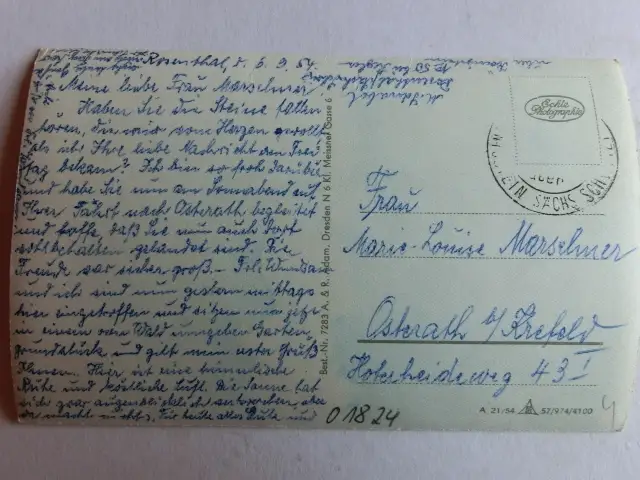 Rosenthal, d. 6.9.54
Meine liebe Frau Marschner!
Haben Sie die Steine fallen
hören, die mir vom Herzen gerollt
als ich Ihre liebe Nachricht den Frei
tag bekam? Ich bin so froh darüber
und habe Sie nun am Sonnabend auf
Ihrer Fahrt nach Osterath begleitet
und hoffe daß Sie nun auch dort
wohlbehalten gelandet sind. Die
Freude war sicher groß. – Frl.
und ich sind nun gestern mittags
hier eingetroffen und sitzen nun jetzt
in einem vom Wald umgeben Garten
grundstücke und gilt mein erster Gruß
Ihnen. Hier ist eine himmlische
Ruhe und köstliche Luft. Die Sonne hat
sich zwar augenblicklich verkrochen, aber
das macht nichts. Für heute alles Gute und
Best.-Nr. 7283 A. & R. Adam, Dresden N 6 Kl. Meissner Gasse 6
Echte
Photographie
SÄCHS. SCHWEIZ
Frau
Marie-Louise Marschner
Osterath b/Krefeld
Hoterheideweg 43 I
01824
A 21/54 52/974/4100
4